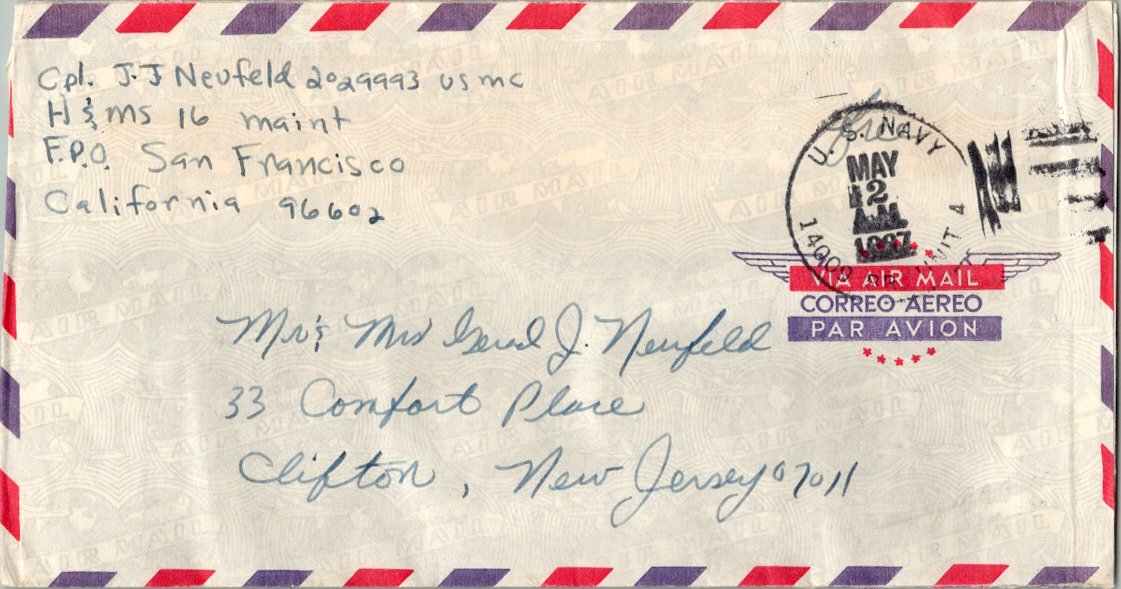 Cpl. J.J Neufeld 2029993 USMC
H & MS 16 maint
F.P.O. San Francisco
California 96602
Free
U. S. NAVY
MAY
12
A.M.
14009 BR. UNIT 4
VIA AIR MAIL
CORREO AEREO
PAR AVION
Mr & Mrs Gerard J. Neufeld
33 Comfort Place
Clifton, New Jersey 07011